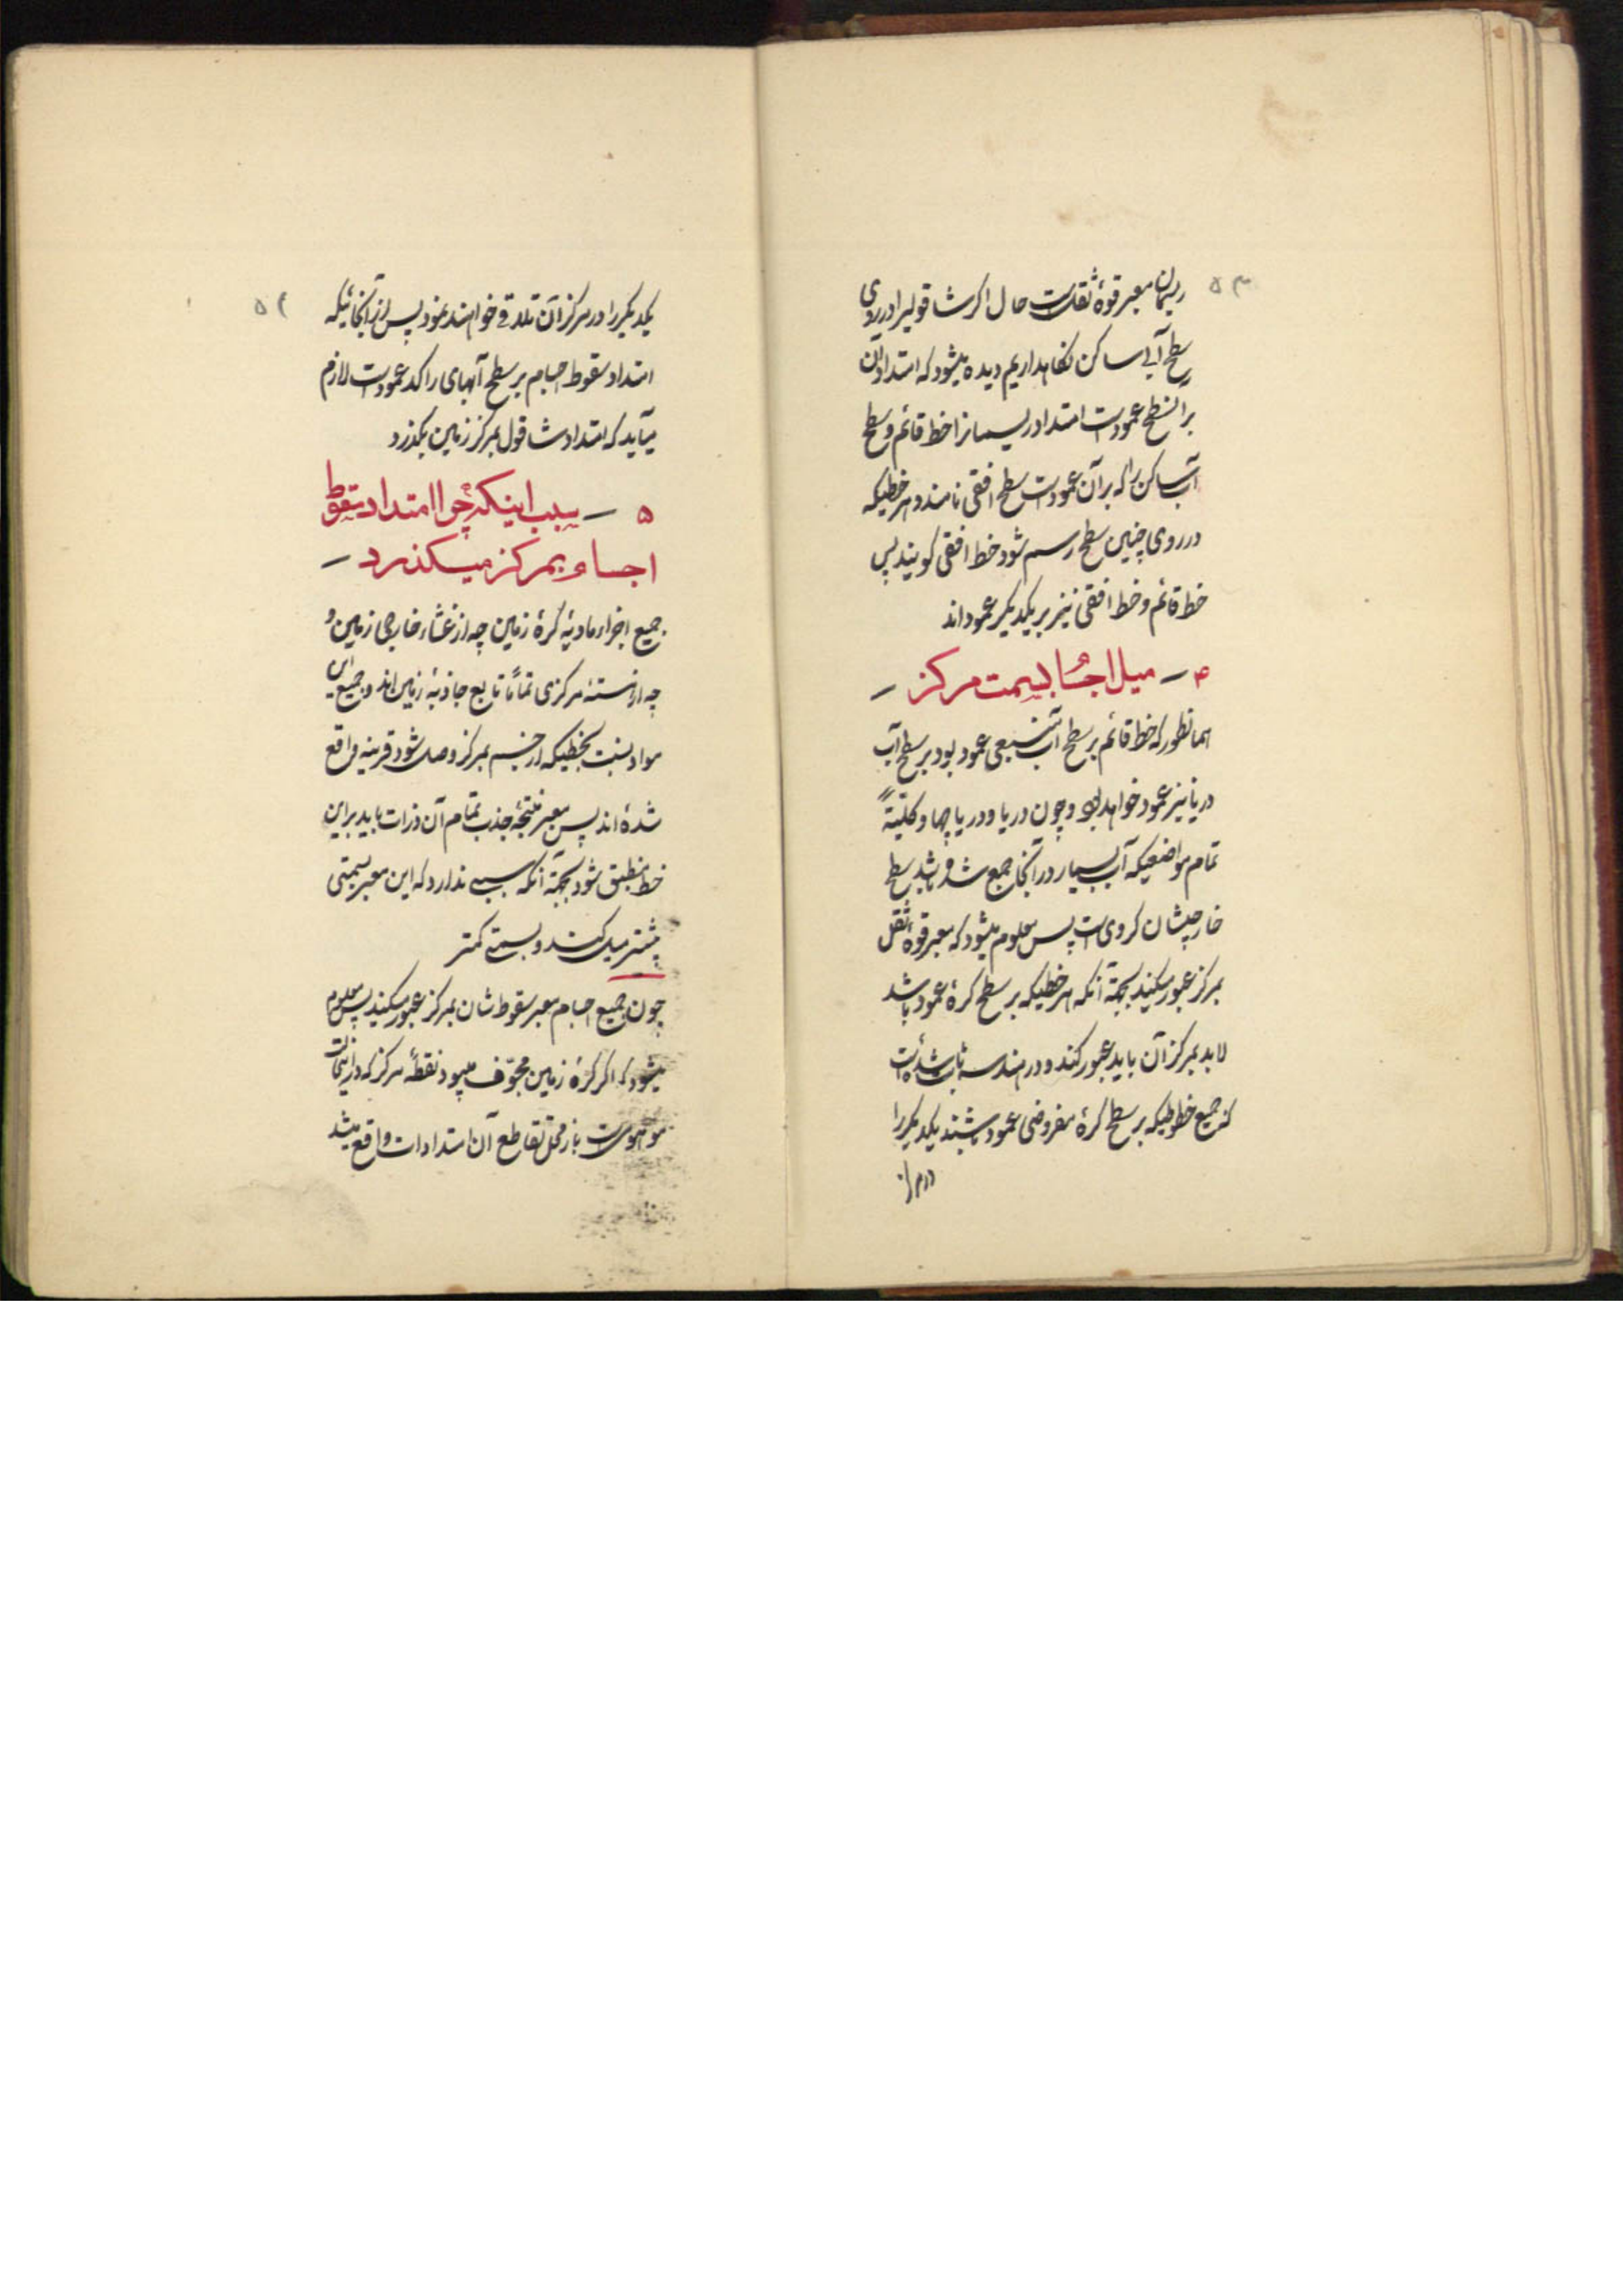 ۵۳
ریسمان معبر قوهٔ ثقلست حال اکر شاقولیرا در روی
سطح آبی ساکن نکاهداریم دیده میشود که امتداد آن
بر انسطح عمودست امتداد ریسمانرا خط قائم و سطح
آب ساکن را که بر آن عمودست سطح افقی نامند و هر خطیکه
در روی چنین سطح رسم شود خط افقی کویند پس
خط قائم و خط افقی نیز بر یکدیکر عمود اند
۴ – میل اجسام بسمت مرکز –
همانطور که خط قائم بر سطح آب عمود بود بر سطح آب
دریا نیز عمود خواهد بود و چون دریا و دریاچها و کلیةً
تمام مواضعیکه آب بسیار در آنجا جمع شده باشد سطح
خارجیشان کروی است پس معلوم میشود که معبر قوهٔ ثقل
بمرکز عبور میکند بجهة آنکه هر خطیکه بر سطح کرهٔ عمود باشد
لابد بمرکز آن باید عبور کند و در هندسه ثابت شده است
که جمیع خطوطیکه بر سطح کرهٔ مفروضی عمود باشند یکدیکر را
در مرکز
۵۴
یکدیکر را در مرکز آن تلاقی خواهند نمود پس از آنجائیکه
امتداد سقوط اجسام بر سطح آبهای راکد عمودست لازم
میآید که امتداد شاقول بمرکز زمین بکذرد
۵ – سبب اینکه چرا امتداد سقوط
اجسام بمرکز میکذرد –
جمیع اجزاء مادیهٔ کرهٔ زمین چه از غشاء خارجی زمین و
چه از هستهٔ مرکزی تماماً تابع جاذبهٔ زمین اند و جمیع این
مواد نسبت بخطیکه از جسم بمرکز وصل شود قرینه واقع
شده اند پس معبر منتجهٔ جذب تمام آن ذرات باید بر این
خط منطبق شود بجهة آنکه سببی ندارد که این معبر بسمتی
بیشتر میل کند و بسمتی کمتر
چون جمیع اجسام معبر سقوطشان بمرکز عبور میکند پس معلوم
میشود که اکر کرهٔ زمین مجوّف میبود نقطهٔ مرکز که در اینحالت
موهومست باز محل تقاطع آن امتدادات واقع میشد